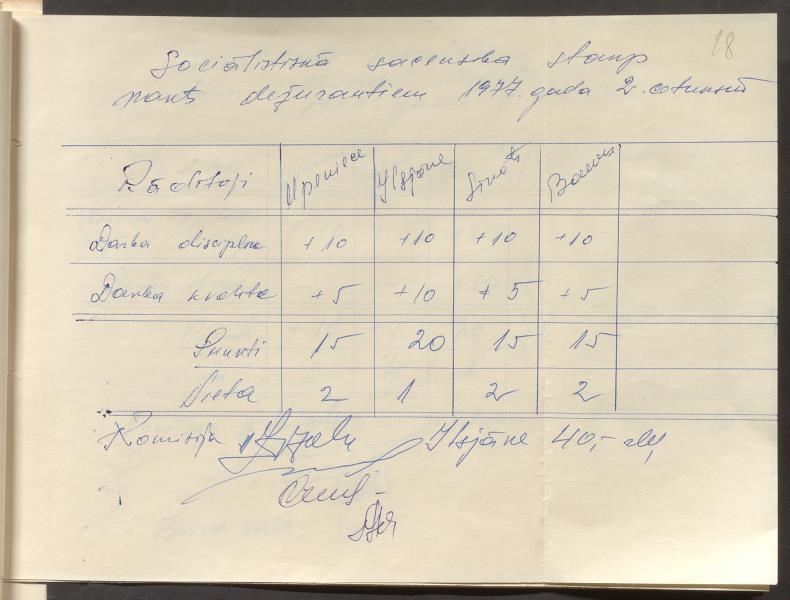 18
Sociālistiskā sacensība starp
dežurantiem 1977. gada 2. ceturksnī
Rādītaji Upeniece Ilsjāne
Darba disciplina +10 +10 +10 +10
Darba kvalite +5 +10 +5 +5
Punkti 15 20 15 15
Vieta 2 1 2 2
Komisija Ilsjāne 40,-